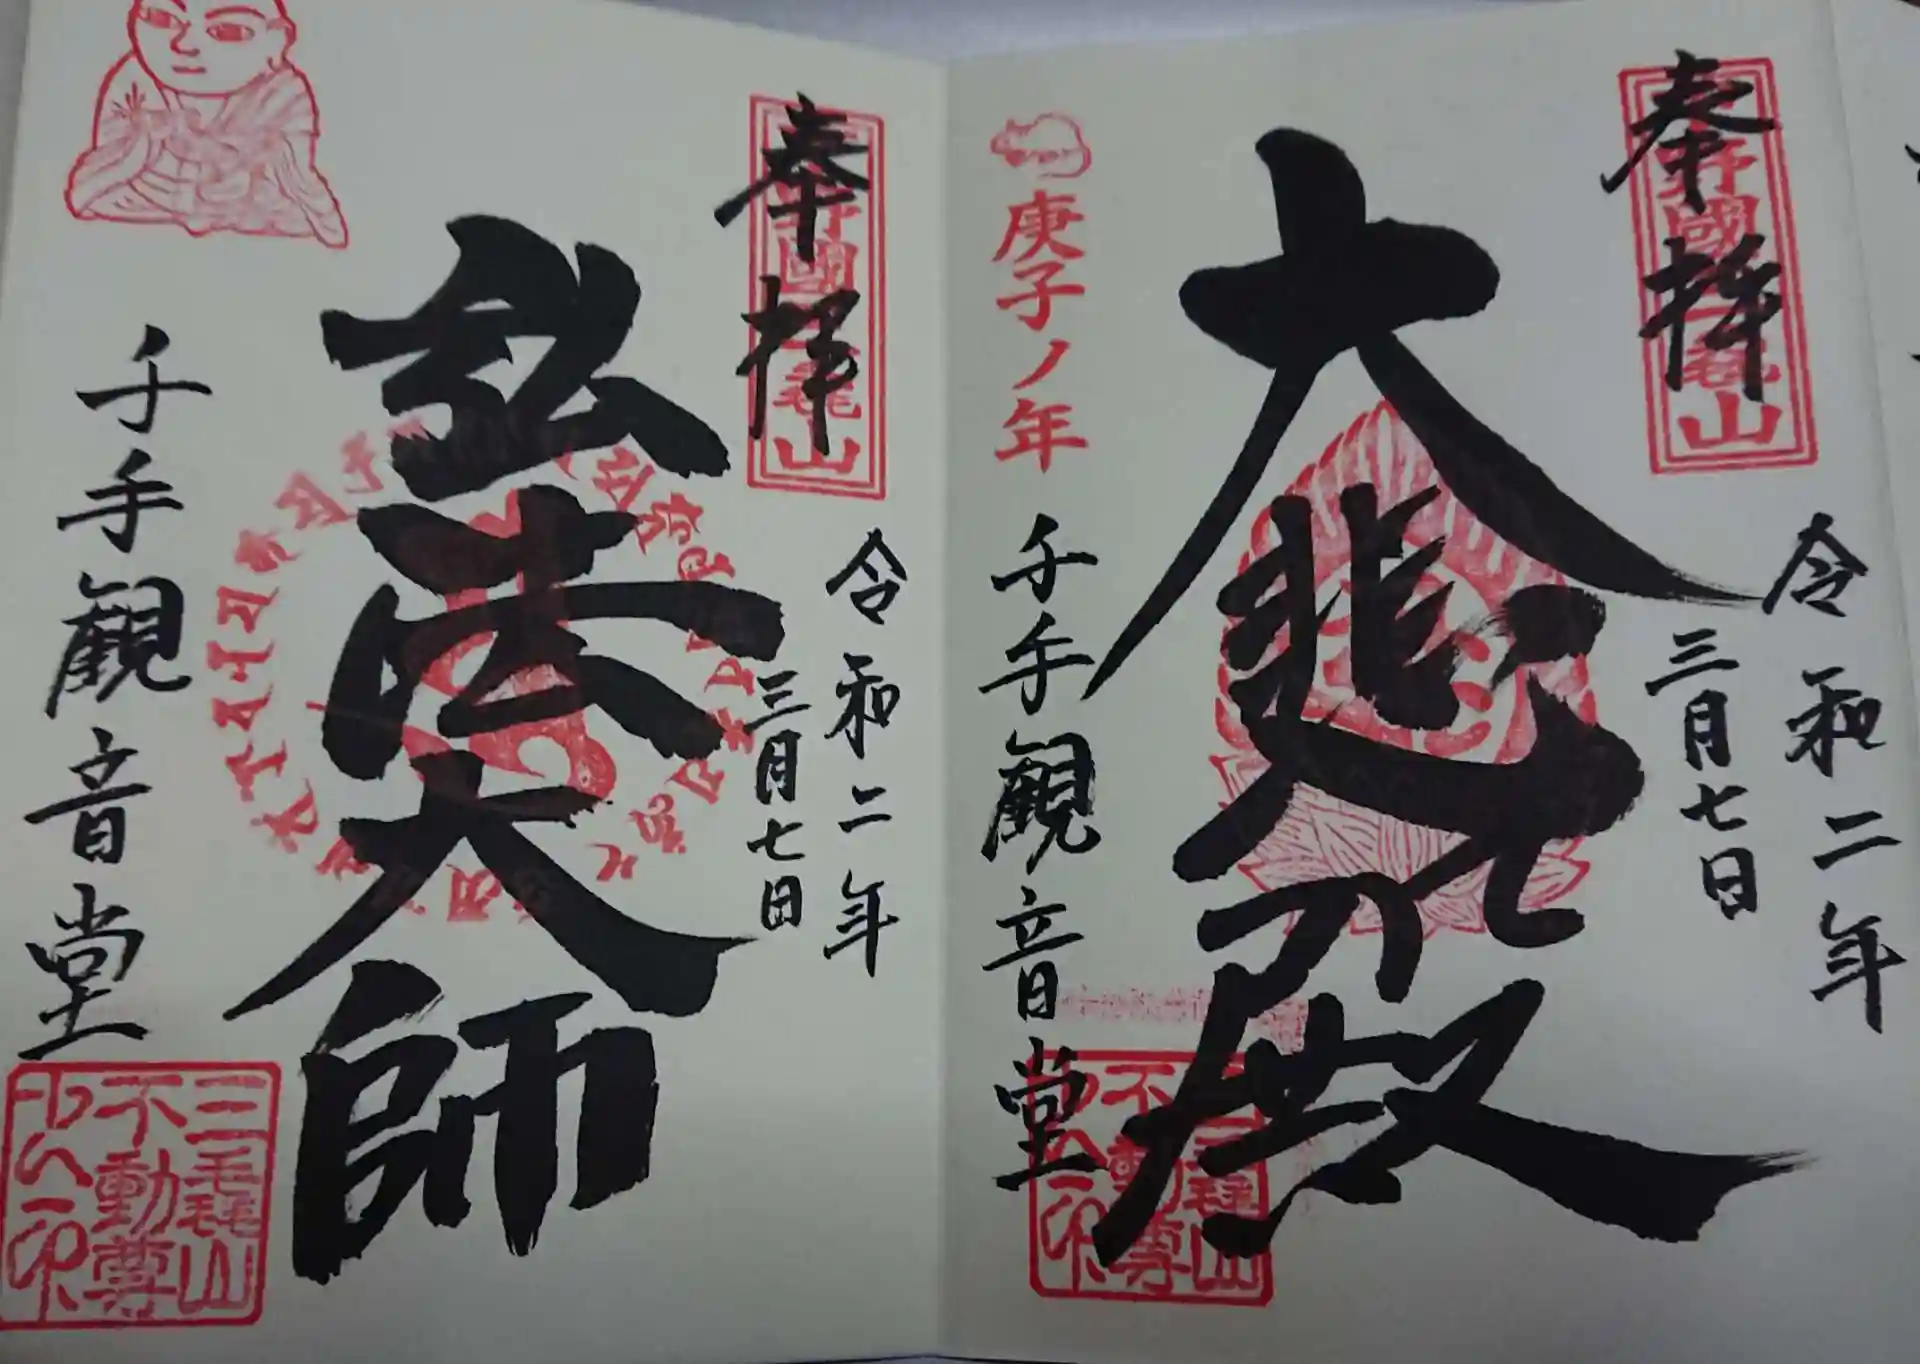 奉拝
令和二年
三月七日
大悲殿
庚子ノ年
千手観音堂
奉拝
令和二年
三月七日
弘法大師
千手観音堂
三毳山
不動尊